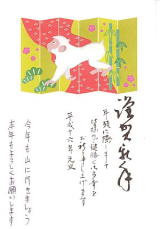 謹賀新年
年頭に際しまして
皆様のご健勝とご多幸を
お祈り申し上げます
平成十六年元旦
今年も山に行きましょう
本年もよろしくお願いします